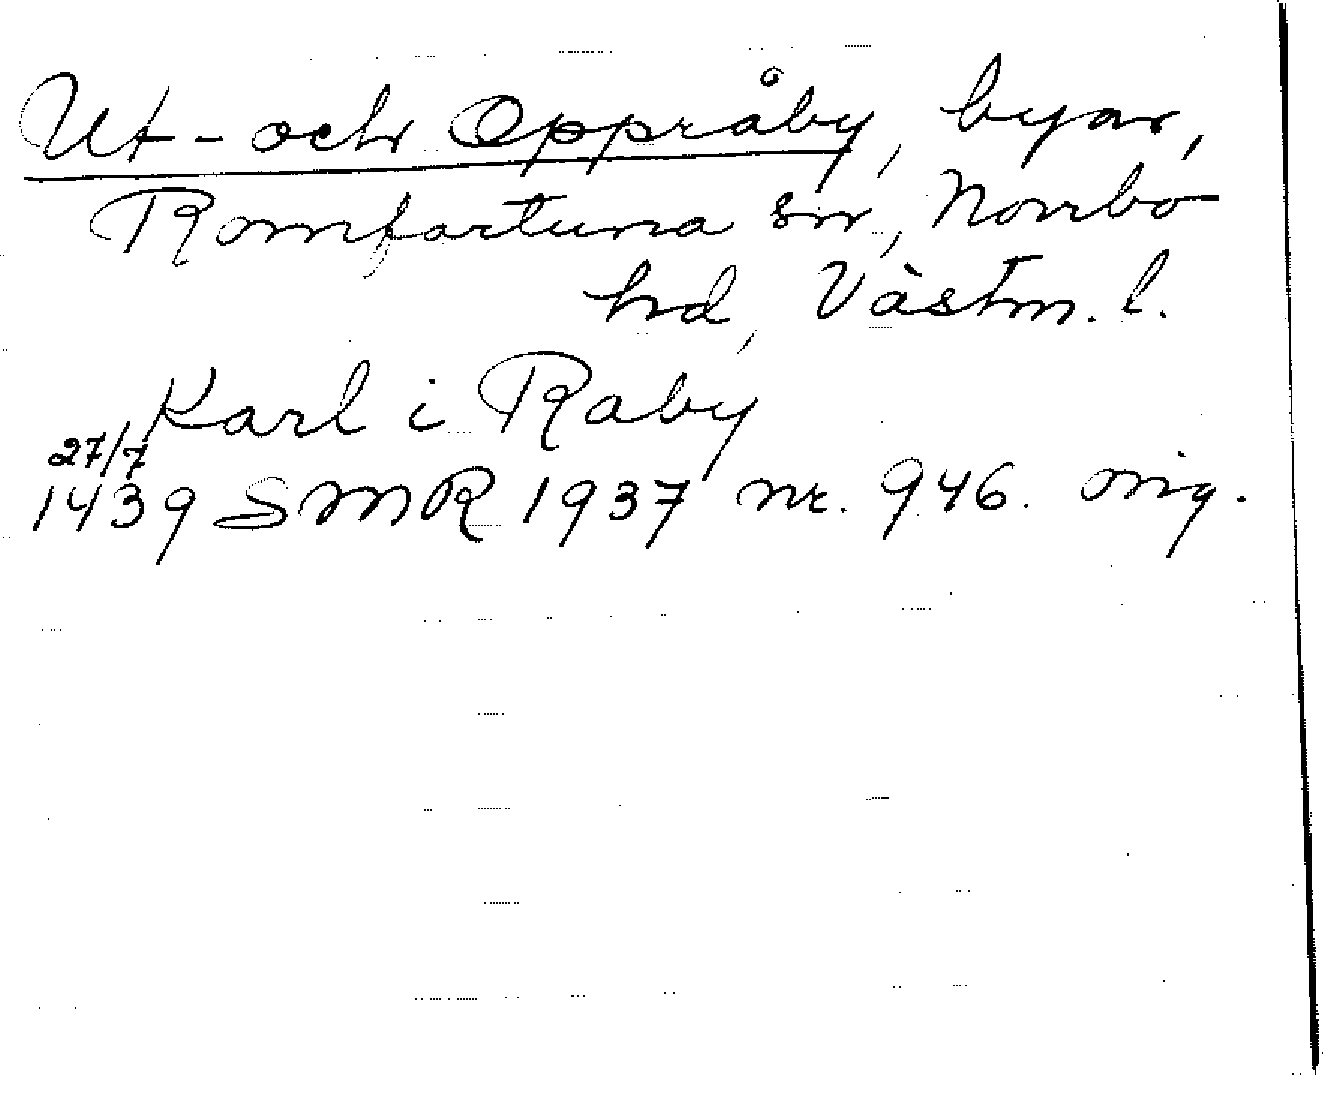 Ut- och Oppråby, byar,
Romfartuna sn, Norrbo
hd, Västm. l.
Karl i Raby
27/7
1439 SMR 1937 nr. 946. orig.